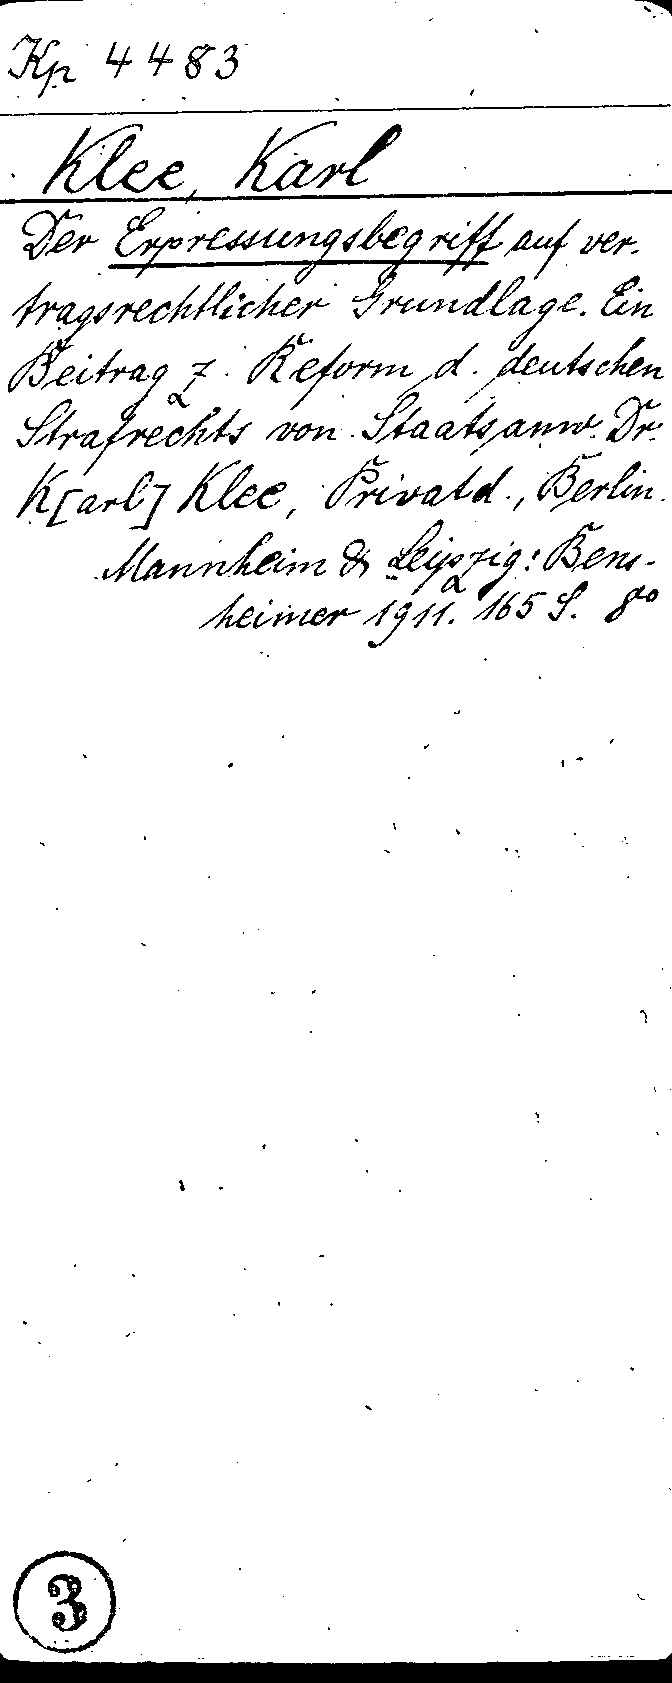 Kp 4483
Klee, Karl
Der Erpressungsbegriff auf ver-
tragsrechtlicher Grundlage. Ein
Beitrag z. Reform d. deutschen
Strafrechts von Staatsanw. Dr.
K[arl] Klee, Privatd., Berlin.
Mannheim & Leipzig: Bens-
heimer 1911. 165 S. 8°
3